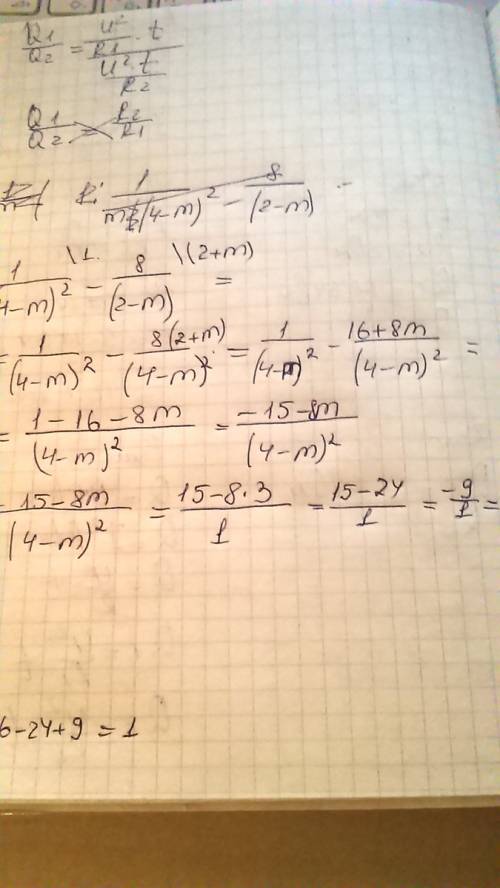 Q1/Q2 = (U²/R1 · t)/(U² · t/R2)
Q1/Q2 = R2/R1
1/(4-m)² - 8/(2-m) -
1/(4-m)² \1. - 8/(2-m) \(2+m) =
= 1/(4-m)² - 8(2+m)/(4-m)² = 1/(4-m)² - 16+8m/(4-m)² =
= 1-16-8m/(4-m)² = -15-8m/(4-m)²
15-8m/(4-m)² = 15-8·3/1 = 15-24/1 = -9/1 =
6-24+9=1